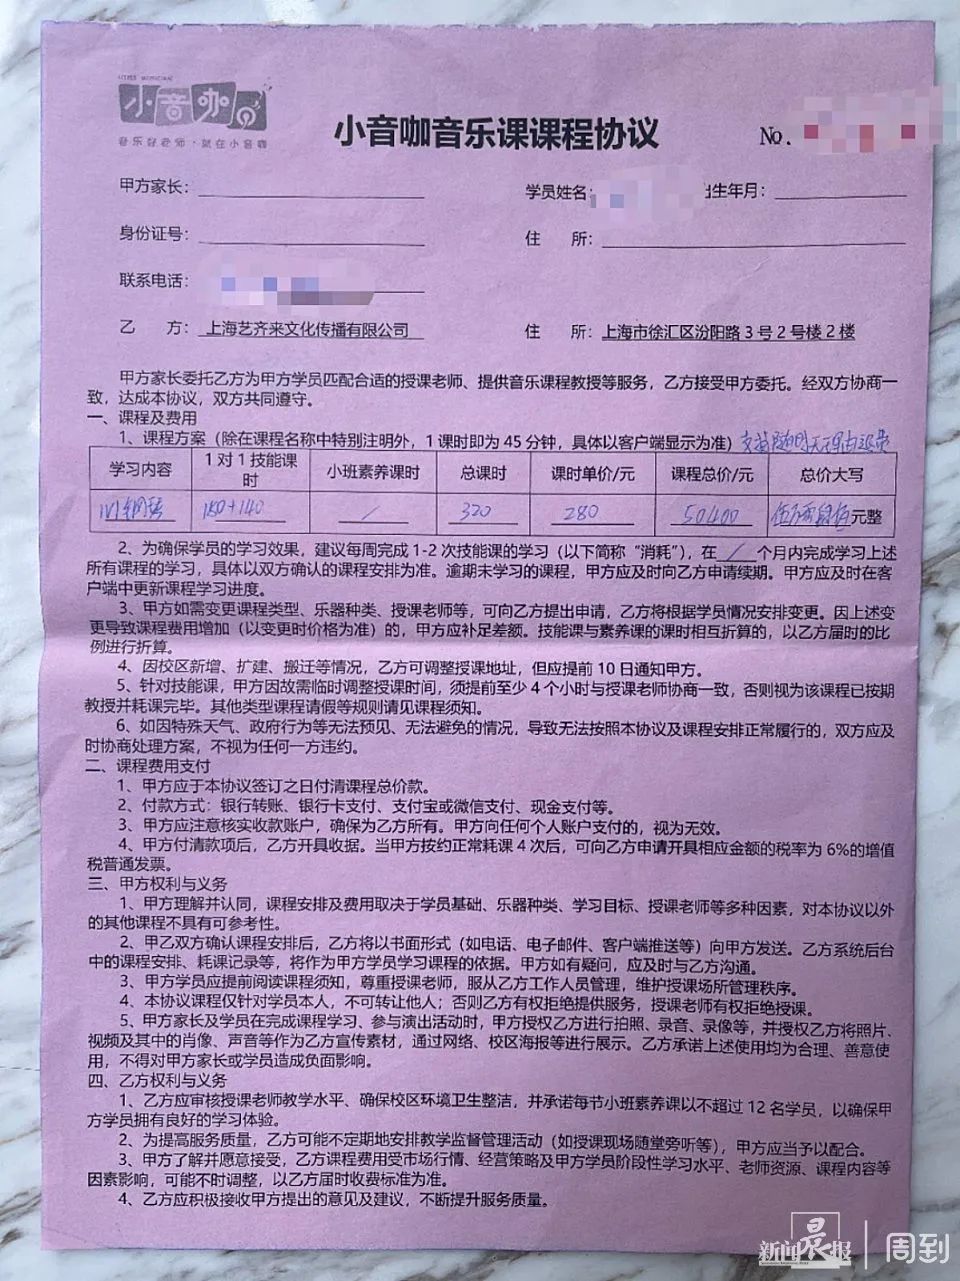 LITTLE MUSICIAN
小音咖
音乐好老师·就在小音咖
小音咖音乐课课程协议
No.
甲方家长：
学员姓名：
出生年月：
身份证号：
住　所：
联系电话：
乙　方：上海艺齐来文化传播有限公司
住　所：上海市徐汇区汾阳路3号2号楼2楼
甲方家长委托乙方为甲方学员匹配合适的授课老师、提供音乐课程教授等服务，乙方接受甲方委托。经双方协商一
致，达成本协议，双方共同遵守。
一、课程及费用
1、课程方案（除在课程名称中特别注明外，1课时即为45分钟，具体以客户端显示为准）支持随时无理由退费
学习内容 1对1技能课时 小班素养课时 总课时 课时单价/元 课程总价/元 总价大写
1V1钢琴 180+140 / 320 280 50400 伍万 元整
2、为确保学员的学习效果，建议每周完成1-2次技能课的学习（以下简称“消耗”），在 / 个月内完成学习上述
所有课程的学习，具体以双方确认的课程安排为准。逾期未学习的课程，甲方应及时向乙方申请续期。甲方应及时在客
户端中更新课程学习进度。
3、甲方如需变更课程类型、乐器种类、授课老师等，可向乙方提出申请，乙方将根据学员情况安排变更。因上述变
更导致课程费用增加（以变更时价格为准）的，甲方应补足差额。技能课与素养课的课时相互折算的，以乙方届时的比
例进行折算。
4、因校区新增、扩建、搬迁等情况，乙方可调整授课地址，但应提前10日通知甲方。
5、针对技能课，甲方因故需临时调整授课时间，须提前至少4个小时与授课老师协商一致，否则视为该课程已按期
教授并耗课完毕。其他类型课程请假等规则请见课程须知。
6、如因特殊天气、政府行为等无法预见、无法避免的情况，导致无法按照本协议及课程安排正常履行的，双方应及
时协商处理方案，不视为任何一方违约。
二、课程费用支付
1、甲方应于本协议签订之日付清课程总价款。
2、付款方式：银行转账、银行卡支付、支付宝或微信支付、现金支付等。
3、甲方应注意核实收款账户，确保为乙方所有。甲方向任何个人账户支付的，视为无效。
4、甲方付清款项后，乙方开具收据。当甲方按约正常耗课4次后，可向乙方申请开具相应金额的税率为6%的增值
税普通发票。
三、甲方权利与义务
1、甲方理解并认同，课程安排及费用取决于学员基础、乐器种类、学习目标、授课老师等多种因素，对本协议以外
的其他课程不具有可参考性。
2、甲乙双方确认课程安排后，乙方将以书面形式（如电话、电子邮件、客户端推送等）向甲方发送。乙方系统后台
中的课程安排、耗课记录等，将作为甲方学员学习课程的依据。甲方如有疑问，应及时与乙方沟通。
3、甲方学员应提前阅读课程须知，尊重授课老师，服从乙方工作人员管理，维护授课场所管理秩序。
4、本协议课程仅针对学员本人，不可转让他人；否则乙方有权拒绝提供服务，授课老师有权拒绝授课。
5、甲方家长及学员在完成课程学习、参与演出活动时，甲方授权乙方进行拍照、录音、录像等，并授权乙方将照片、
视频及其中的肖像、声音等作为乙方宣传素材，通过网络、校区海报等进行展示。乙方承诺上述使用均为合理、善意使
用，不得对甲方家长或学员造成负面影响。
四、乙方权利与义务
1、乙方应审核授课老师教学水平、确保校区环境卫生整洁，并承诺每节小班素养课以不超过12名学员，以确保甲
方学员拥有良好的学习体验。
2、为提高服务质量，乙方可能不定期地安排教学监督管理活动（如授课现场随堂旁听等），甲方应当予以配合。
3、甲方了解并愿意接受，乙方课程费用受市场行情、经营策略及甲方学员阶段性学习水平、老师资源、课程内容等
因素影响，可能不时调整，以乙方届时收费标准为准。
4、乙方应积极接收甲方提出的意见及建议，不断提升服务质量。
新闻晨报 周到